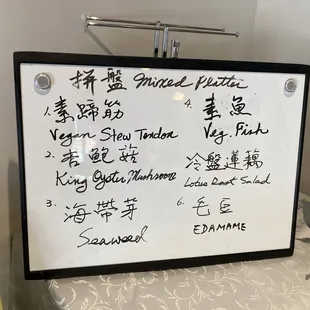 拼盤 Mixed Platter
1. 素蹄筋
Vegan Stew Tendon
2. 杏鮑菇
King Oyster Mushroom
3. 海帶芽
Seaweed
4. 素魚
Veg. Fish
冷盤蓮藕
Lotus Root Salad
6. 毛豆
EDAMAME